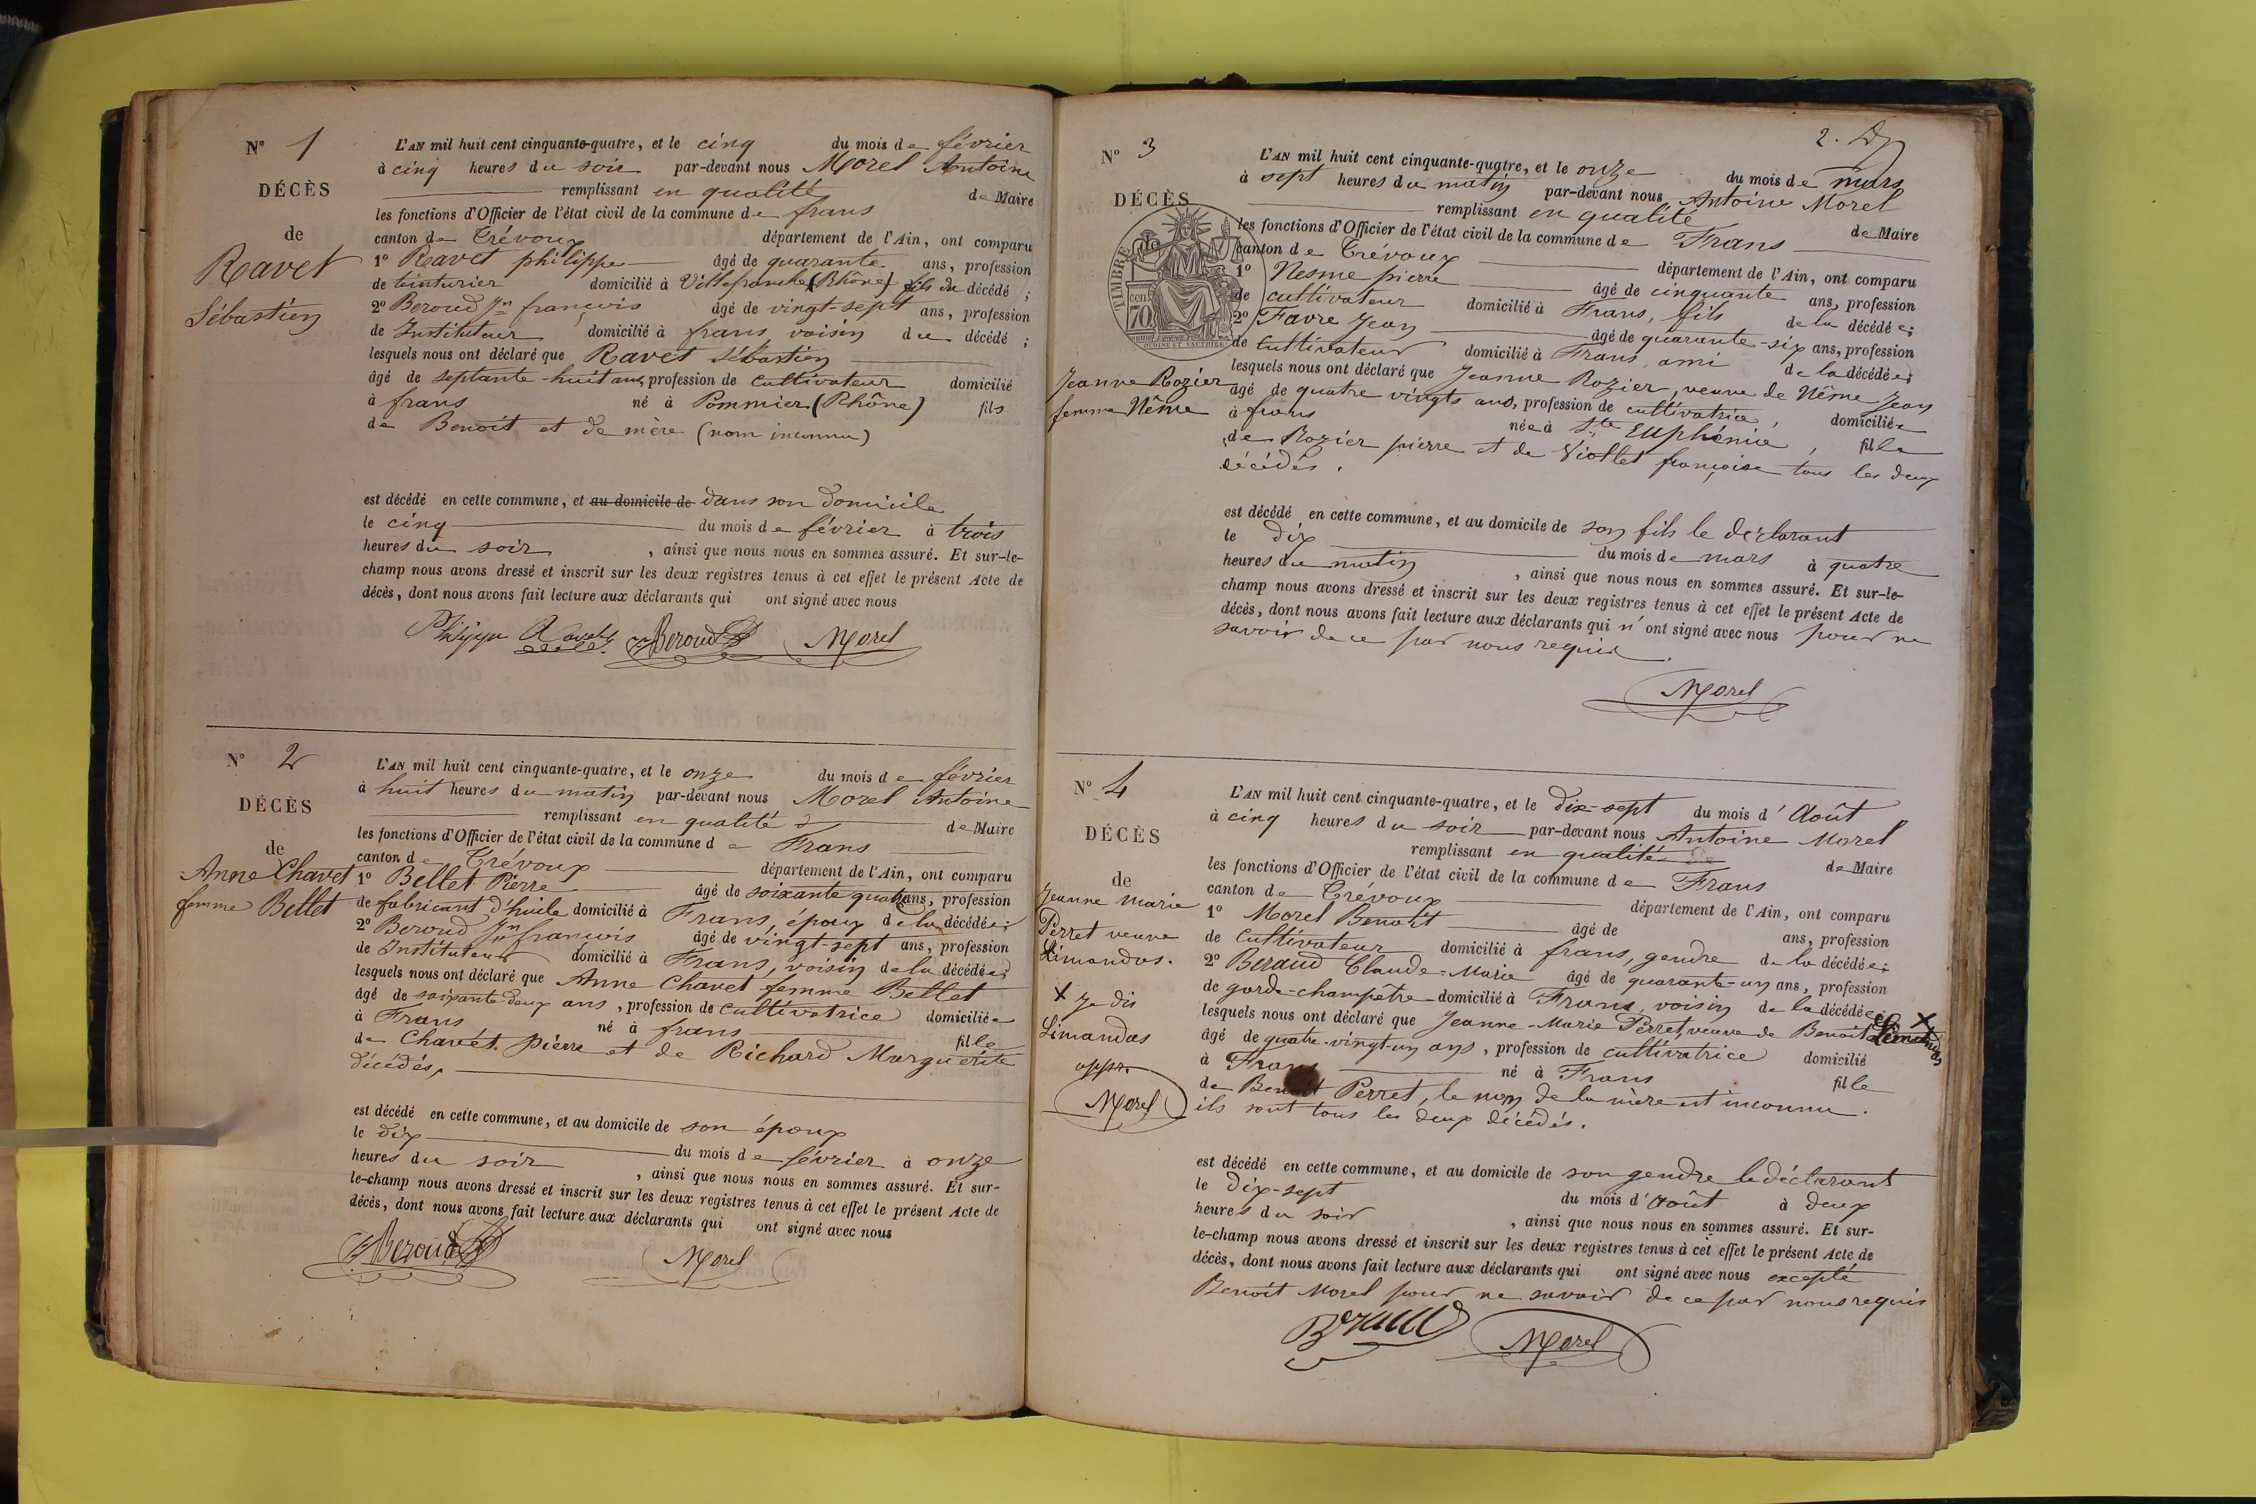 N° 1
DÉCÈS
de
Ravet
Sébastien
L'AN mil huit cent cinquante-quatre, et le cinq du mois de février
à cinq heures du soir par-devant nous Morel Antoine
remplissant en qualité de Maire
les fonctions d'Officier de l'état civil de la commune de frans
canton de Trévoux département de l'Ain, ont comparu
1° Ravet philippe âgé de quarante ans, profession
de teinturier domicilié à Villefranche (Rhône) fils du décédé ;
2° Beroud Jn françois âgé de vingt-sept ans, profession
de Instituteur domicilié à frans voisin du décédé ;
lesquels nous ont déclaré que Ravet Sébastien
âgé de septante-huit ans, profession de cultivateur domicilié
à frans né à Pommier (Rhône) fils
de Benoît et de mère (nom inconnu)
est décédé en cette commune, et au domicile de dans son domicile
le cinq du mois de février à trois
heures du soir, ainsi que nous nous en sommes assuré. Et sur-le-
champ nous avons dressé et inscrit sur les deux registres tenus à cet effet le présent Acte de
décès, dont nous avons fait lecture aux déclarants qui ont signé avec nous
Philippe Ravet Beroud Morel
N° 2
DÉCÈS
de
Anne Chavet
femme Bellet
L'AN mil huit cent cinquante-quatre, et le onze du mois de février
à huit heures du matin par-devant nous Morel Antoine
remplissant en qualité de Maire
les fonctions d'Officier de l'état civil de la commune de Frans
canton de Trévoux département de l'Ain, ont comparu
1° Bellet Pierre âgé de soixante quatre ans, profession
de fabricant d'huile domicilié à Frans, époux de la décédée ;
2° Beroud Jn françois âgé de vingt-sept ans, profession
de Instituteur domicilié à Frans, voisin de la décédée ;
lesquels nous ont déclaré que Anne Chavet femme Bellet
âgé de soixante deux ans, profession de cultivatrice domiciliée
à Frans né à frans fille
de Chavet pierre et de Richard Marguerite
décédés,
est décédé en cette commune, et au domicile de son époux
le dix du mois de février à onze
heures du soir, ainsi que nous nous en sommes assuré. Et sur-
le-champ nous avons dressé et inscrit sur les deux registres tenus à cet effet le présent Acte de
décès, dont nous avons fait lecture aux déclarants qui ont signé avec nous
Beroud Morel
2.
N° 3
DÉCÈS
de
TIMBRE
cent 70
Jeanne Rozier
femme Nême
L'AN mil huit cent cinquante-quatre, et le onze du mois de mars
à sept heures du matin par-devant nous Antoine Morel
remplissant en qualité de Maire
les fonctions d'Officier de l'état civil de la commune de Frans
canton de Trévoux département de l'Ain, ont comparu
1° Nesme pierre âgé de cinquante ans, profession
de cultivateur domicilié à Frans, fils de la décédée ;
2° Favre Jean âgé de quarante-six ans, profession
de Cultivateur domicilié à Frans ami de la décédée ;
lesquels nous ont déclaré que Jeanne Rozier, veuve de Nême Jean
âgé de quatre vingts ans, profession de cultivatrice, domiciliée
à frans née à Ste Euphémie, fille
de Rozier pierre et de Viollet françoise tous les deux
décédés.
est décédé en cette commune, et au domicile de son fils le déclarant
le dix du mois de mars à quatre
heures du matin, ainsi que nous nous en sommes assuré. Et sur-le-
champ nous avons dressé et inscrit sur les deux registres tenus à cet effet le présent Acte de
décès, dont nous avons fait lecture aux déclarants qui n'ont signé avec nous pour ne
savoir de ce par nous requis.
Morel
N° 4
DÉCÈS
de
Jeanne marie
Perret veuve
Limandas.
X Je dis
Limandas
appr.
Morel
L'AN mil huit cent cinquante-quatre, et le dix-sept du mois d'Août
à cinq heures du soir par-devant nous Antoine Morel
remplissant en qualité de Maire
les fonctions d'Officier de l'état civil de la commune de Frans
canton de Trévoux département de l'Ain, ont comparu
1° Morel Benoît âgé de ans, profession
de Cultivateur domicilié à frans, gendre de la décédée ;
2° Beraud Claude-Marie âgé de quarante-un ans, profession
de garde-champêtre domicilié à Frans, voisin de la décédée ;
lesquels nous ont déclaré que Jeanne-Marie Perret, veuve de Benoît Limandas X
âgé de quatre-vingt-un ans, profession de cultivatrice domicilié
à Frans né à Frans fille
de Benoît Perret, le nom de la mère est inconnu.
ils sont tous les deux décédés.
est décédé en cette commune, et au domicile de son gendre le déclarant
le dix-sept du mois d'Août à deux
heures du soir, ainsi que nous nous en sommes assuré. Et sur-
le-champ nous avons dressé et inscrit sur les deux registres tenus à cet effet le présent Acte de
décès, dont nous avons fait lecture aux déclarants qui ont signé avec nous excepté
Benoît Morel pour ne savoir de ce par nous requis
Beraud Morel